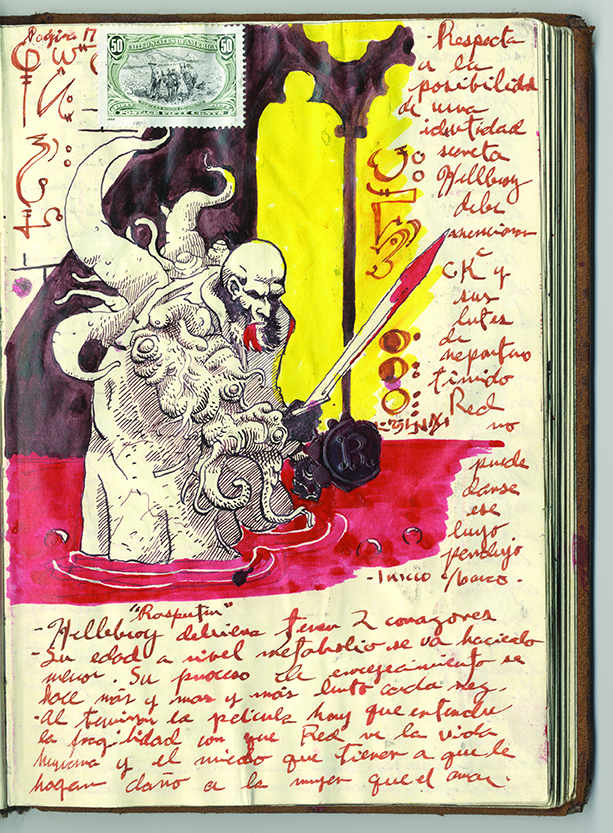 Pagina 17
50 UNITED STATES OF AMERICA 50
POSTAGE FIFTY CENTS
- Respecto
a la
posibilidad
de una
identidad
secreta
Hellboy
debe
mencionar
a CK y
sus
lentes
de
reportero
timido
Red
no
puede
darse
ese
lujo
pendejo
- Inicio /
R
"Rasputin"
- Hellboy debiera tener 2 corazones
- Su edad a nivel metabolico se va haciendo
menor. Su proceso de envejecimiento se
hace más y mas y más lento cada vez.
- Al terminar la pelicula hay que entender
la fragilidad con que Red ve la vida
humana y el miedo que tiene a que le
hagan daño a la mujer que el ama.